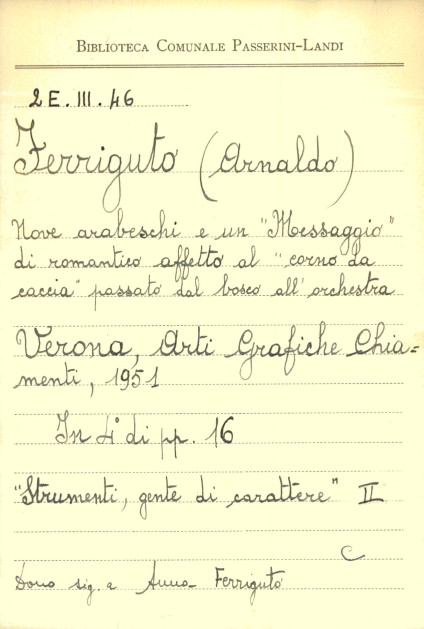 BIBLIOTECA COMUNALE PASSERINI-LANDI
2E.III.46
Ferriguto (Arnaldo)
Nove arabeschi e un "Messaggio"
di romantico affetto al "corno da
caccia" passato dal bosco all'orchestra
Verona, Arti Grafiche Chia=
menti, 1951
In 4° di pp. 16
"Strumenti, gente di carattere" II
C
Dono sig.a Anna Ferriguto